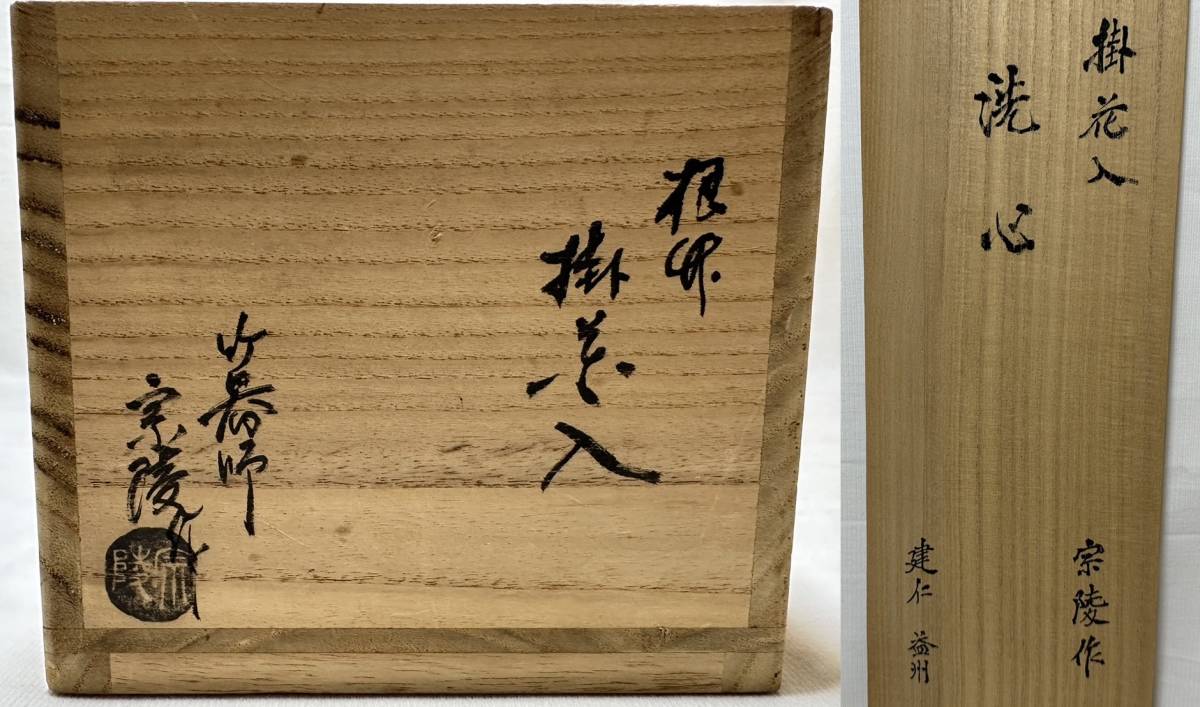 根竹
掛花入
竹器師
宗陵
宗陵
掛花入
洗心
宗陵作
建仁 益州